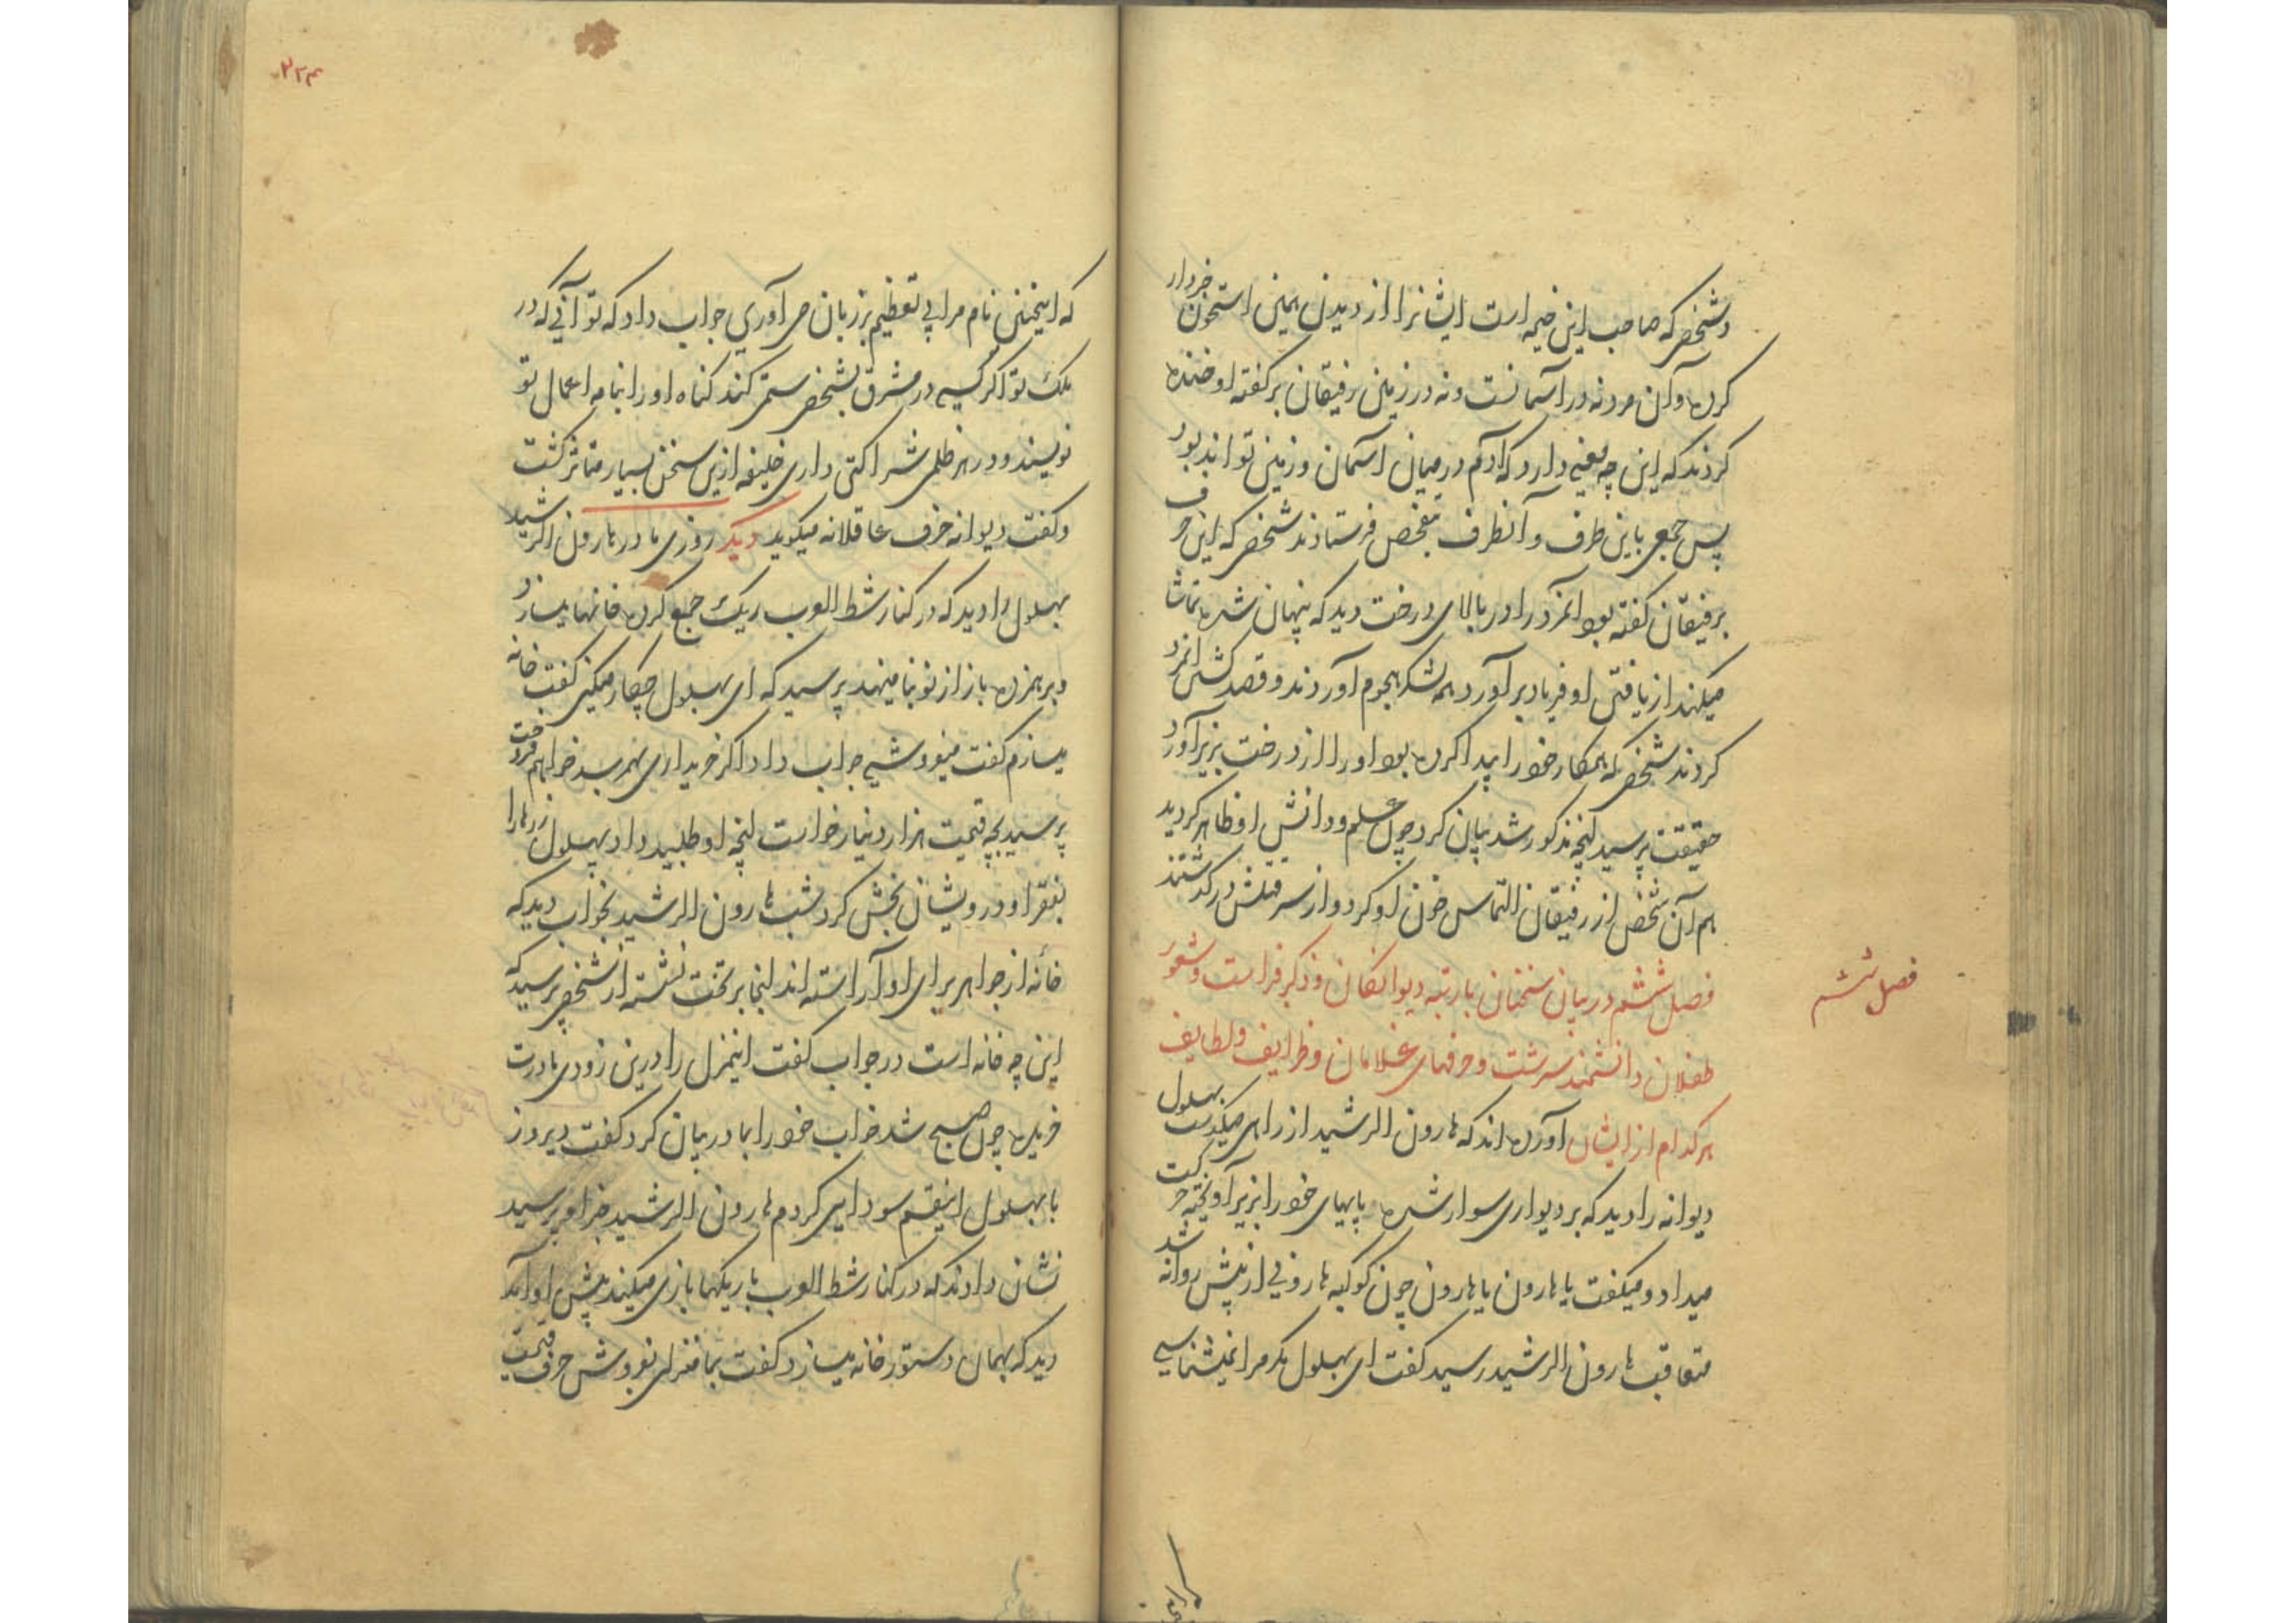 و شخصی که صاحب این خیمه است ایشانرا از دیدن همین استخوان خبردار
کرده و آن مرد نه در آسمانست و نه در زمین رفیقان بر گفته او خنده
کردند که این چه معنی دارد که آدم در میان آسمان و زمین تواند بود
پس جمعی باین طرف و آنطرف بتفحص فرستادند شخصی که این حرف
برفیقان گفته بود آنمرد را در بالای درخت دید که پنهان شده تماشا
میکند از یافتن او فریاد برآورد همه لشکر هجوم آوردند و قصد کشتن آنمرد
کردند شخصی که همکار خود را پیدا کرده بود او را از درخت بزیر آورد
حقیقت پرسید آنچه مذکور شد بیان کرد چون علم و دانش او ظاهر گردید
هم آن شخص از رفیقان التماس خون او کرد و از سر قتلش درگذشتند
فصل ششم در بیان سخنان با رتبه دیوانگان و ذکر فراست و شعور
طفلان دانشمند سرشت و حرفهای غلامان و ظرایف و لطایف
هر کدام از ایشان آورده اند که هارون الرشید از راهی میگذشت بهلول
دیوانه را دید که بر دیواری سوار شده پایهای خود را بزیر آویخته حرکت
میداد و میگفت یا هارون یا هارون چون کوکبه هارونی از پیش روانه شد
متعاقب هارون الرشید رسید گفت ای بهلول مگر مرا نمیشناسی
فصل ششم
۳۲۴
که اینچنین نام مرا بی تعظیم بر زبان می آوری جواب داد که تو آنی که در
ملک تو اگر کسی در مشرق بشخصی ستم کند گناه او را بنامه اعمال تو
نویسند و در هر ظلمی شراکتی داری خلیفه ازین سخن بسیار متاثر گشت
و گفت دیوانه حرف عاقلانه میگوید دیگر روزی مادر هارون الرشید
بهلول را دید که در کنار شط العرب ریک جمع کرده خانها میسازد
و بر همزده باز از نو بنا مینهد پرسید که ای بهلول چکار میکنی گفت خانه
میسازم گفت میفروشی جواب داد اگر خریداری بهم رسد خواهم فروخت
پرسید بچه قیمت هزار دینار خواست آنچه او طلبید داد بهلول زرها را
بفقرا و درویشان بخش کرد شب هارون الرشید بخواب دید که
خانه از جواهر برای او آراسته اند آنجا بر تخت نشسته از شخصی پرسید که
این چه خانه است در جواب گفت اینمنزل را درین زودی مادرت
خریده چون صبح شد خواب خود را بمادر بیان کرد گفت دیروز
با بهلول اینقسم سودایی کردم هارون الرشید خبر او پرسید
نشان دادند که در کنار شط العرب با ریکها بازی میکند پیش او آمد
دید که بهمان دستور خانه میسازد گفت بما منزلی بفروش حرف قیمت